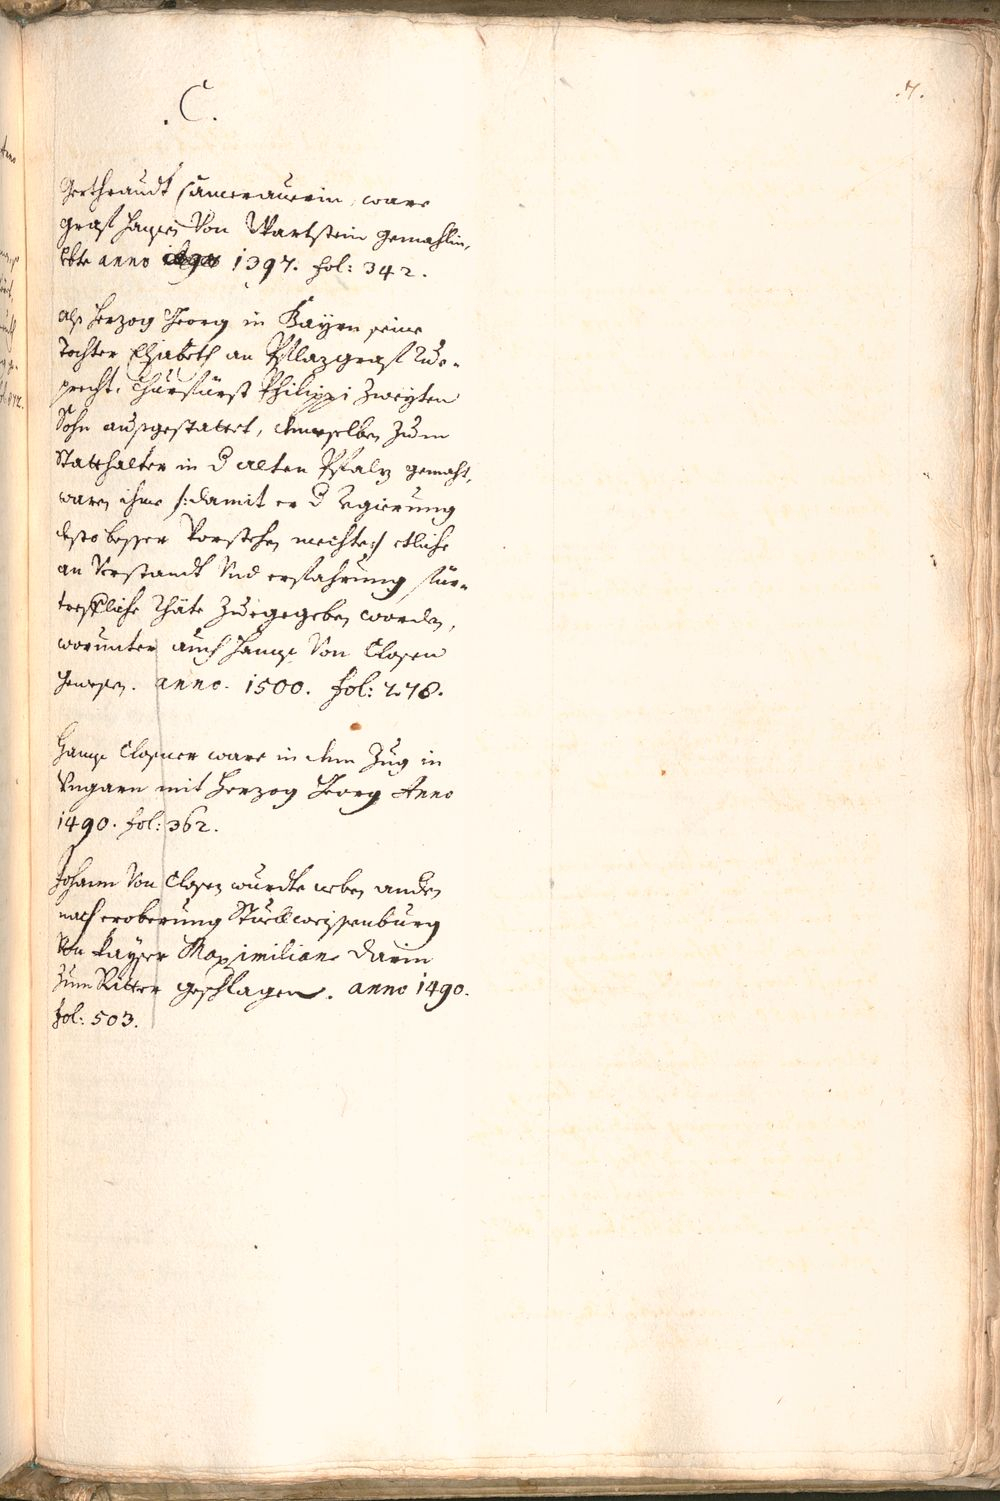 .7.
.C.
Gerthraudt Camerauerin, ware
graf Hansen Von Wartstein gemahlin,
lebte anno 1397. fol: 342.
Alß Herzog Georg in Bayrn seine
Tochter Elsabeth an Pfalzgraf Rue-
precht. Churfürst Philippi Zweyten
Sohn außgestattet, denselben Zum
Statthalter in d alten Pfalz gemacht,
waren ihme /:damit er d Regierung
desto besser Vorstehen mechte:/ etliche
an Verstandt Vnd erfahrung für-
treffliche Räte Zuegegeben worden,
worunter auch Hanns Von Closen
gewesen. anno. 1500. fol: 278.
Hanns Closner ware in dem Zug in
Vngarn mit Herzog Georg Anno
1490. fol: 362.
Johann Von Closen wurdte neben anden
nach eroberung Stuelweissenburg
Von Kayser Maximiliano darin
Zum Ritter geschlagen. anno 1490.
fol: 503.